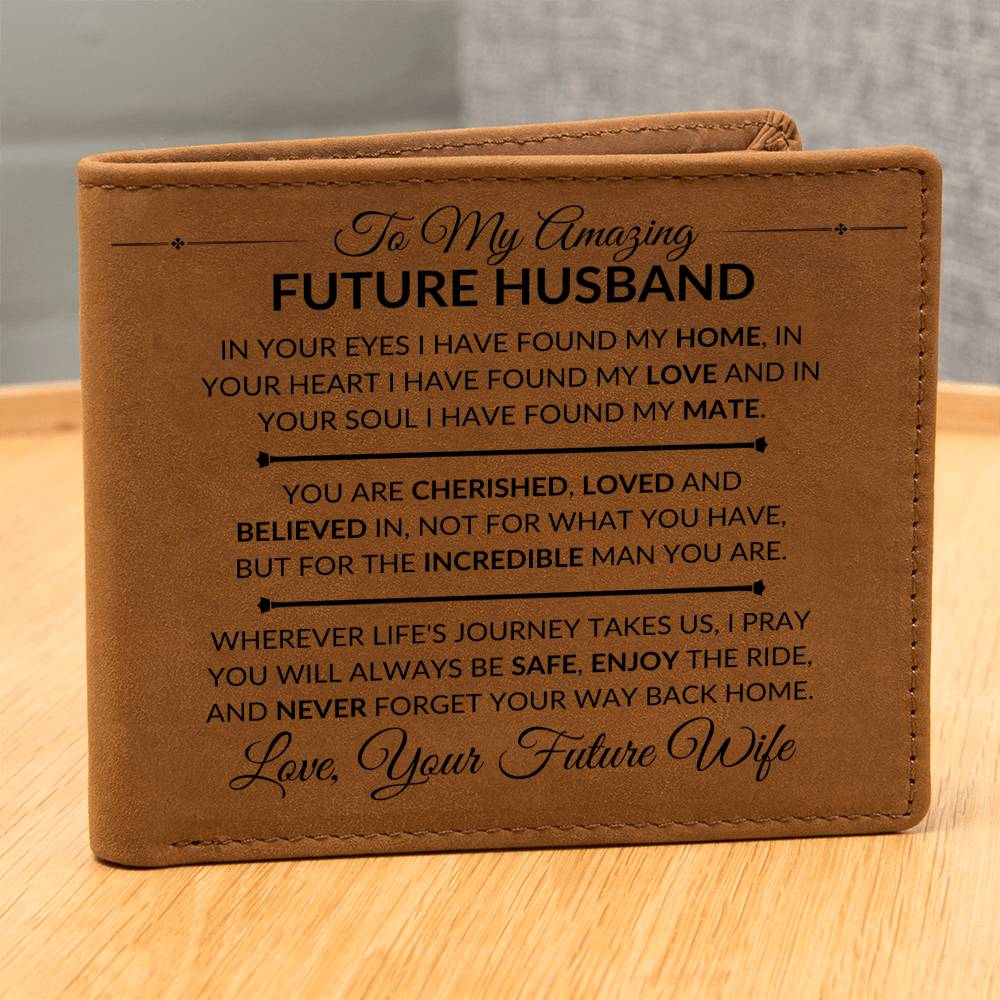 To My Amazing
FUTURE HUSBAND
IN YOUR EYES I HAVE FOUND MY HOME, IN
YOUR HEART I HAVE FOUND MY LOVE AND IN
YOUR SOUL I HAVE FOUND MY MATE.
YOU ARE CHERISHED, LOVED AND
BELIEVED IN, NOT FOR WHAT YOU HAVE,
BUT FOR THE INCREDIBLE MAN YOU ARE.
WHEREVER LIFE'S JOURNEY TAKES US, I PRAY
YOU WILL ALWAYS BE SAFE, ENJOY THE RIDE,
AND NEVER FORGET YOUR WAY BACK HOME.
Love, Your Future Wife